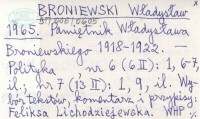 BRONIEWSKI Władysław
1965. Pamiętnik Władysława
Broniewskiego 1918-1922. —
Polityka nr 6 (6 II): 1, 6-7,
il.; nr 7 (13 II): 1, 9, il. Wy-
bór tekstów, komentarz i przypisy:
Feliksa Lichodziejewska. WHP